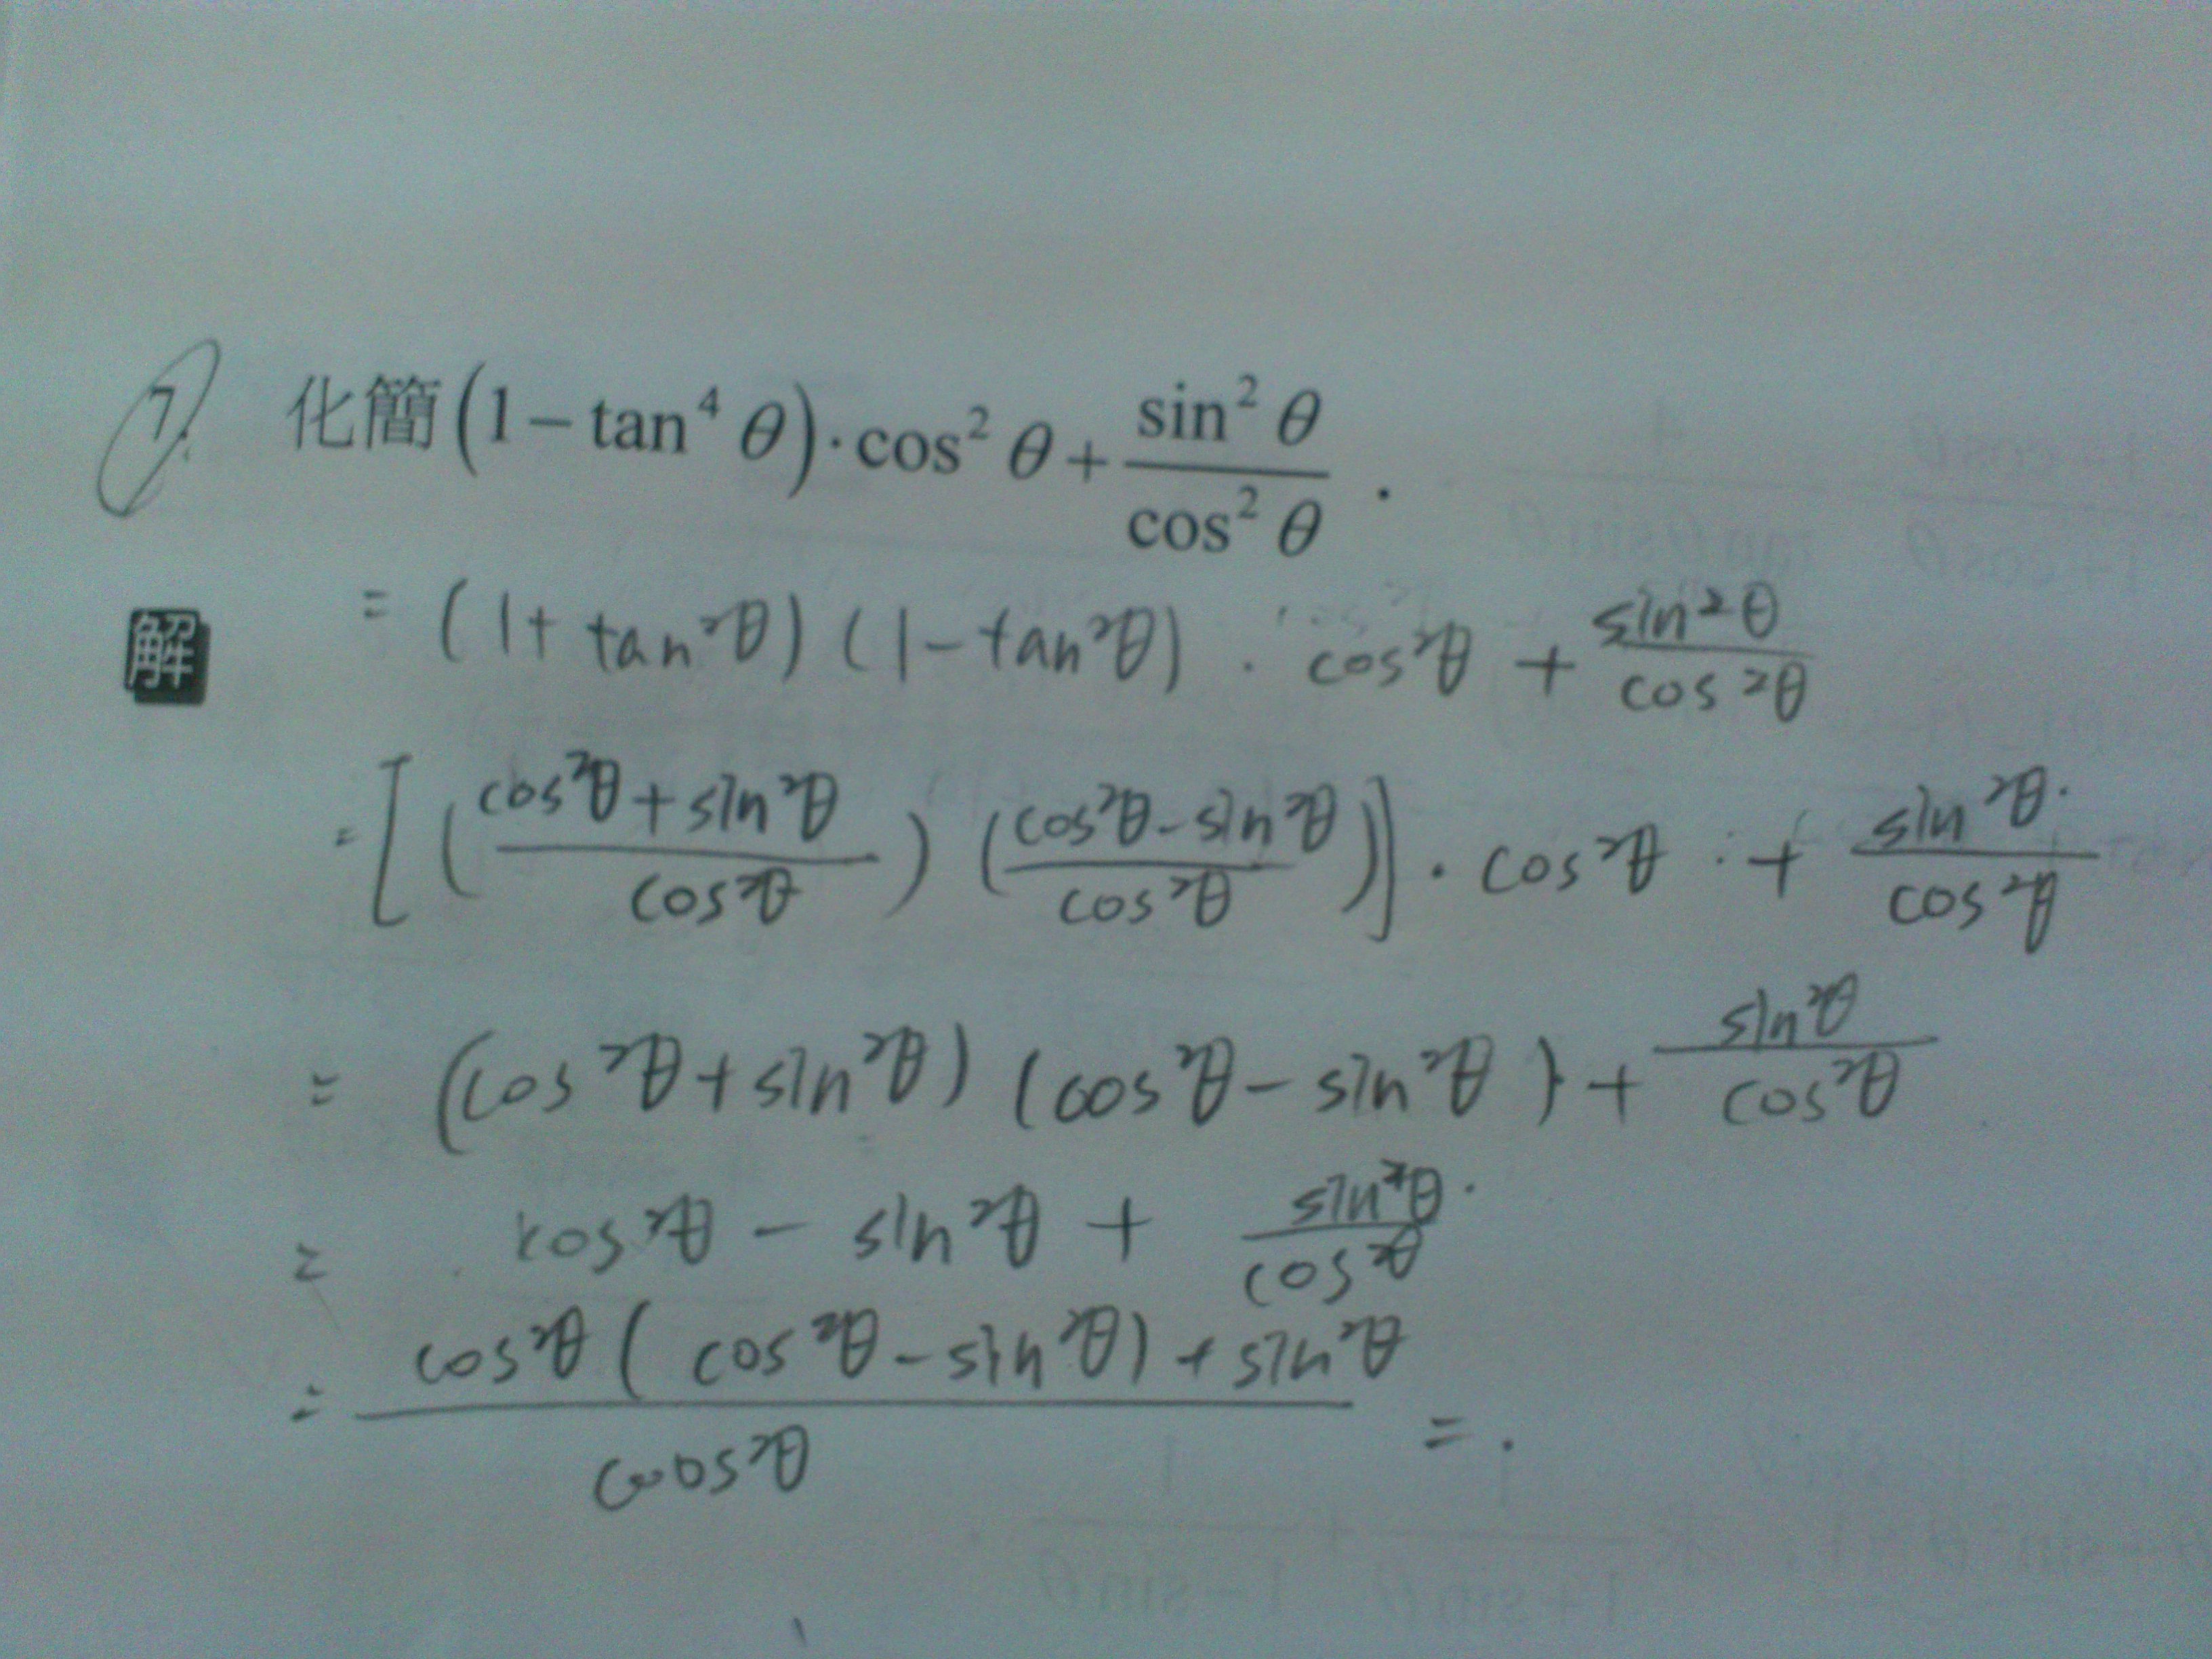 7. 化簡(1−tan⁴θ)·cos²θ+sin²θ/cos²θ.
解
= (1+tan²θ)(1−tan²θ)·cos²θ+sin²θ/cos²θ
=[((cos²θ+sin²θ)/cos²θ)((cos²θ−sin²θ)/cos²θ)]·cos²θ+sin²θ/cos²θ
= (cos²θ+sin²θ)(cos²θ−sin²θ)+sin²θ/cos²θ
= cos²θ−sin²θ+sin²θ/cos²θ
= (cos²θ(cos²θ−sin²θ)+sin²θ)/cos²θ = .